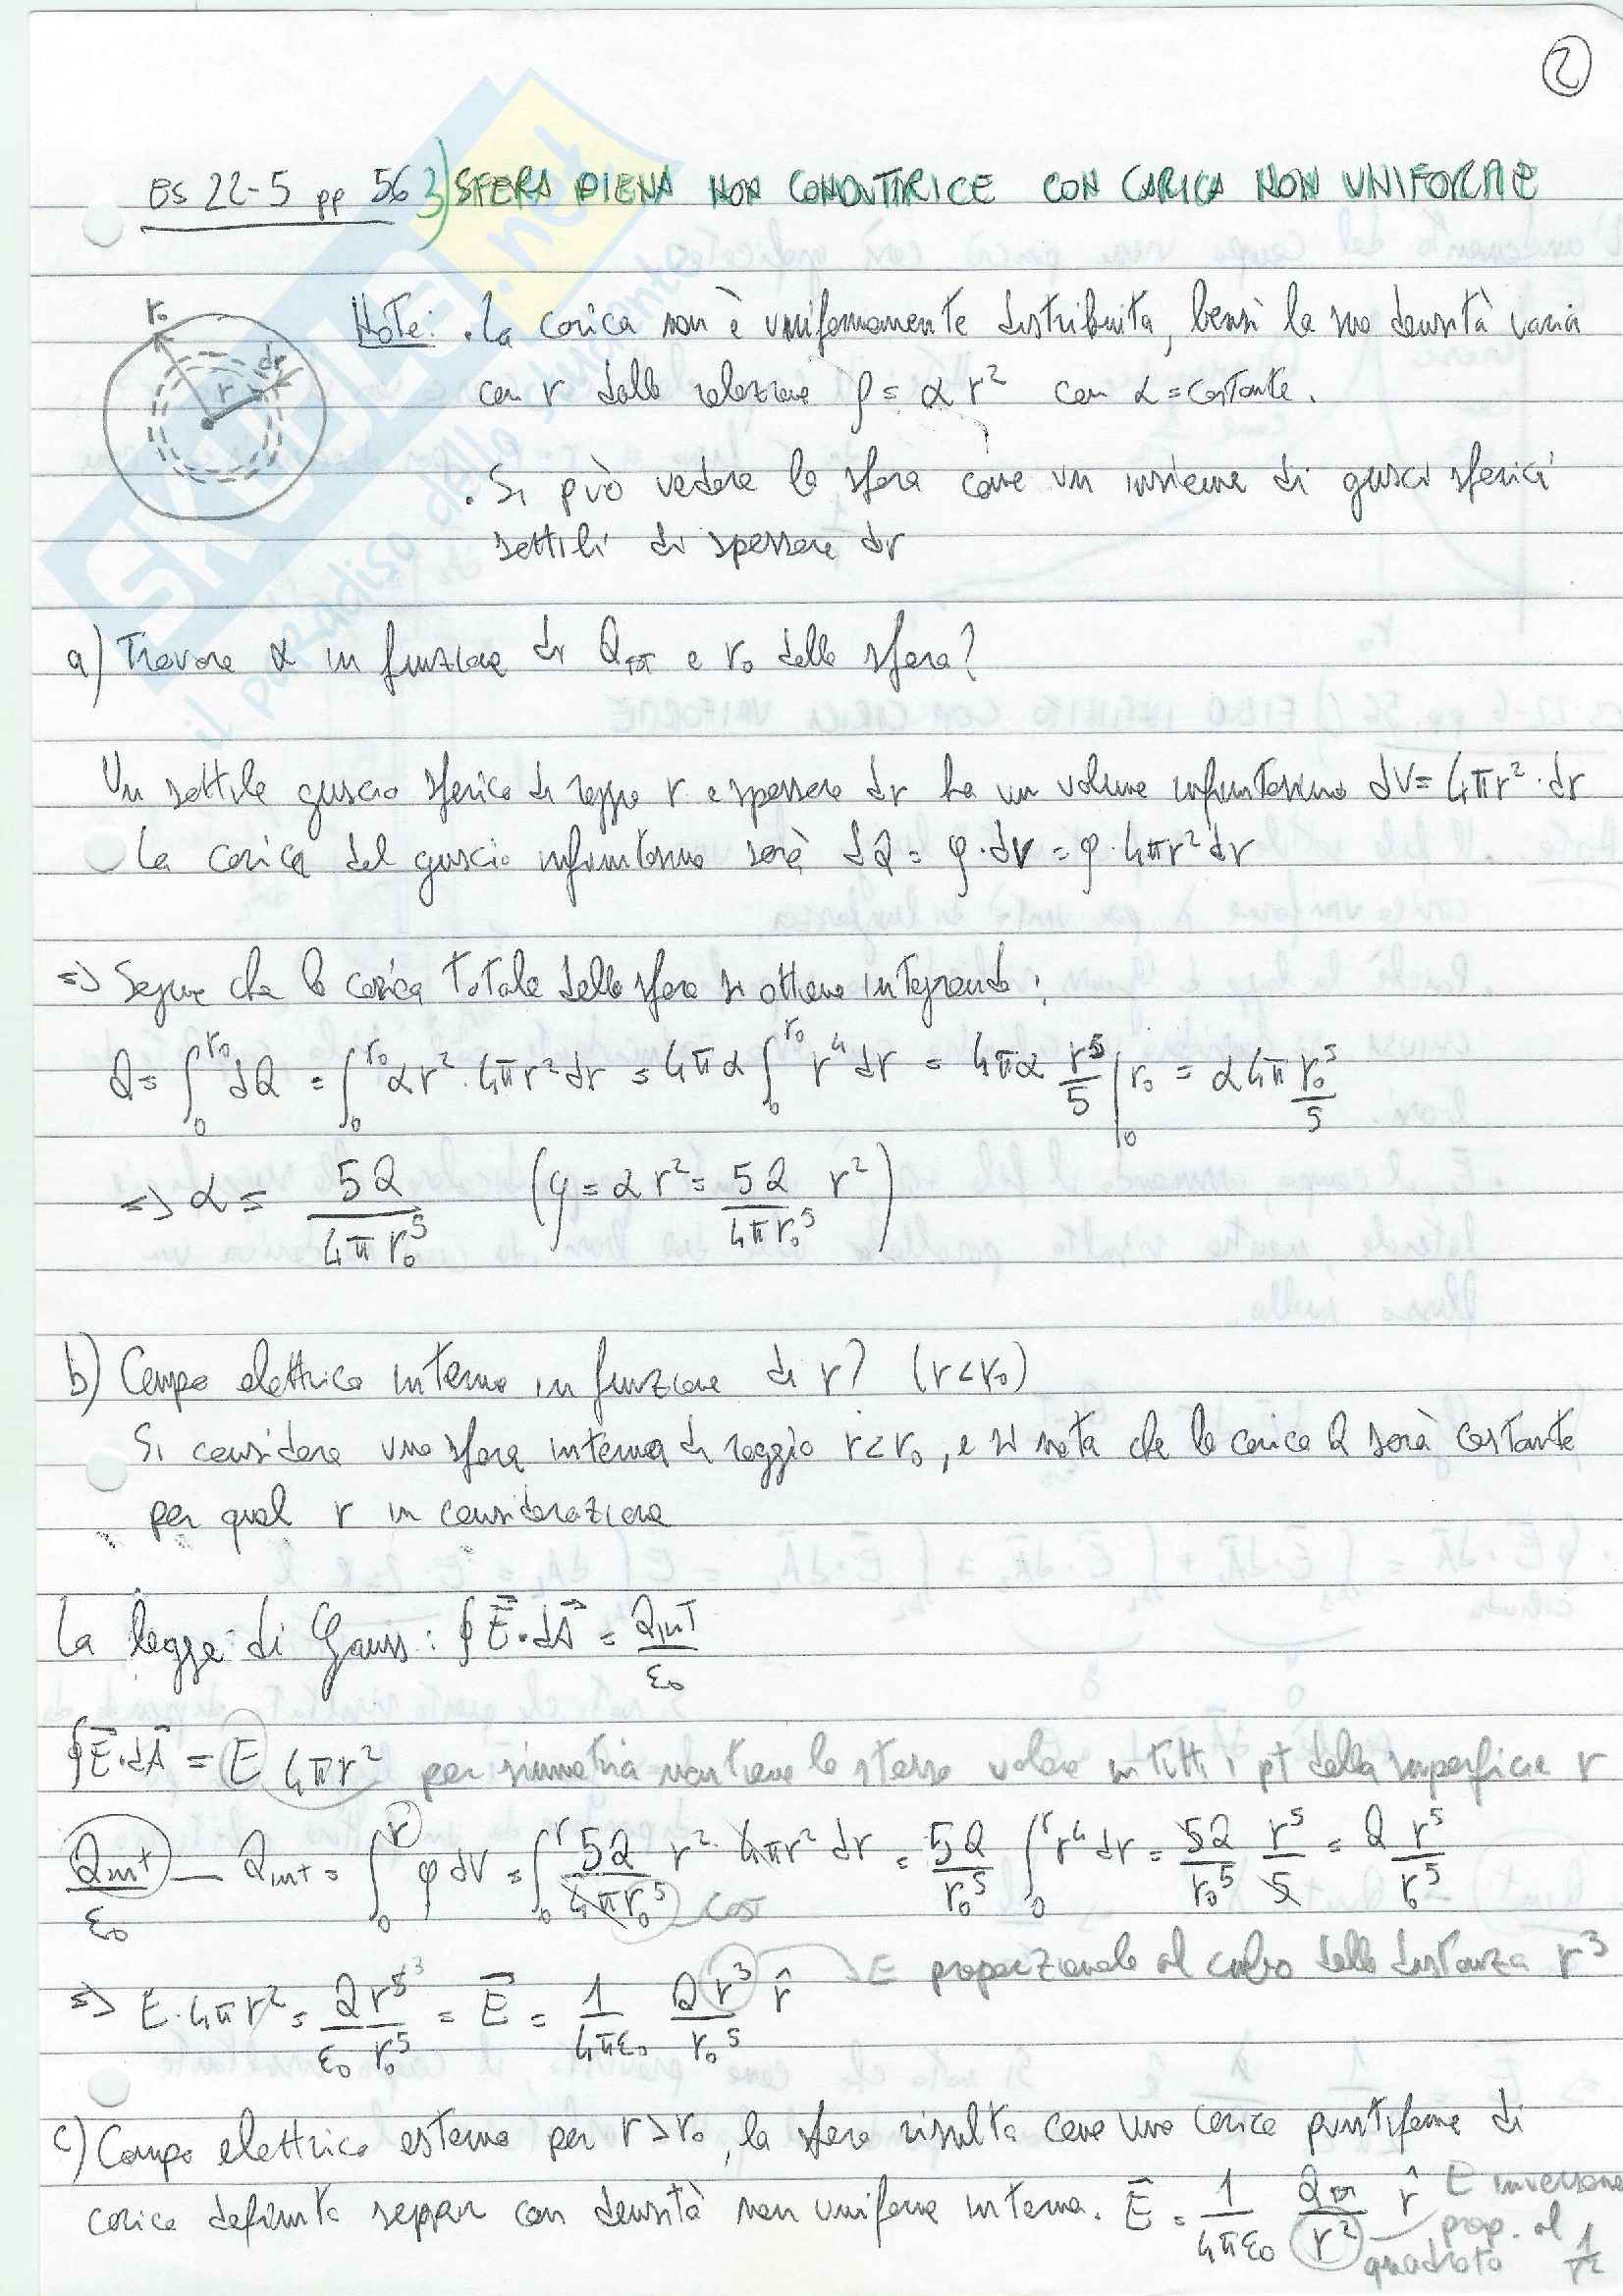 2
ES 22-5 pp 563) SFERA PIENA NON CONDUTTRICE CON CARICA NON UNIFORME
SKUOLA.net
il paradiso dello studente
r₀
dr
r
Note: . La carica non è uniformemente distribuita, bensì la sua densità varia
con r dalla relazione ρ = α r² con α = costante.
. Si può vedere la sfera come un insieme di gusci sferici
sottili di spessore dr
a) Trovare α in funzione di Q_TOT e r₀ della sfera?
Un sottile guscio sferico di raggio r e spessore dr ha un volume infinitesimo dV = 4πr² · dr
La carica del guscio infinitesimo sarà dQ = ρ · dV = ρ · 4πr² dr
=> Segue che la carica totale della sfera si ottiene integrando:
Q = ∫₀^r₀ dQ = ∫₀^r₀ αr² · 4πr² dr = 4πα ∫₀^r₀ r⁴ dr = 4πα r⁵/5 |₀^r₀ = α4π r₀⁵/5
=> α = 5Q/4πr₀⁵ (ρ = αr² = 5Q/4πr₀⁵ r²)
b) Campo elettrico interno in funzione di r? (r < r₀)
Si considera una sfera interna di raggio r < r₀, e si nota che la carica Q sarà costante
per qual r in considerazione
La legge di Gauss: ∮ E⃗ · dA⃗ = Q_INT/ε₀
∮ E⃗ · dA⃗ = E 4πr² per simmetria mantiene lo stesso valore in tutti i pt della superficie r
Q_int/ε₀ — Q_int = ∫₀^r ρ dV = ∫₀^r 5Q/4πr₀⁵ r² · 4πr² dr = 5Q/r₀⁵ ∫₀^r r⁴ dr = 5Q/r₀⁵ r⁵/5 = Q r⁵/r₀⁵
cost
=> E · 4πr² = Qr⁵/ε₀ r₀⁵ = E⃗ = 1/4πε₀ Qr³/r₀⁵ r̂ E proporzionale al cubo della distanza r³
c) Campo elettrico esterno per r > r₀, la sfera risulta come una carica puntiforme di
carica definita seppur con densità non uniforme interna. E⃗ = 1/4πε₀ Q_TOT/r² r̂ E inversamente
prop. al
quadrato 1/r²